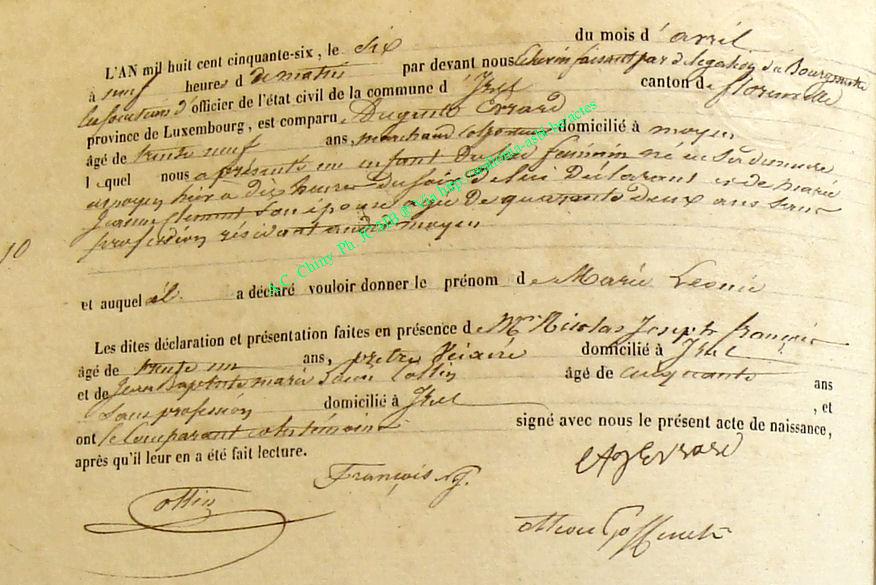 L'AN mil huit cent cinquante-six, le six du mois d'avril
à neuf heures d de matin par devant nous Echevin faisant par délégation du Bourgmestre
les fonctions d'officier de l'état civil de la commune d'Izel canton de florenville
province de Luxembourg, est comparu Auguste Evrard
âgé de trente neuf ans, marchand colporteur domicilié à moyen
lequel nous a présenté un enfant du sexe féminin né en sa demeure
a moyen hier à dix heures du soir de lui déclarant et de marie
Jeanne Clement son épouse agée de quarante deux ans sans
profession résidant audit moyen
10
et auquel il a déclaré vouloir donner le prénom de Marie Leonie
Les dites déclaration et présentation faites en présence de Mr Nicolas Joseph françois
âgé de trente un ans, prêtre vicaire domicilié à Izel
et de Jean Baptiste marie Louis Collin âgé de cinquante ans
sans profession domicilié à Izel, et
ont le Comparant et les témoins signé avec nous le présent acte de naissance,
après qu'il leur en a été fait lecture.
François NJ. Aug Evrard
Collin Goffinet
A.C. Chiny Ph. JC